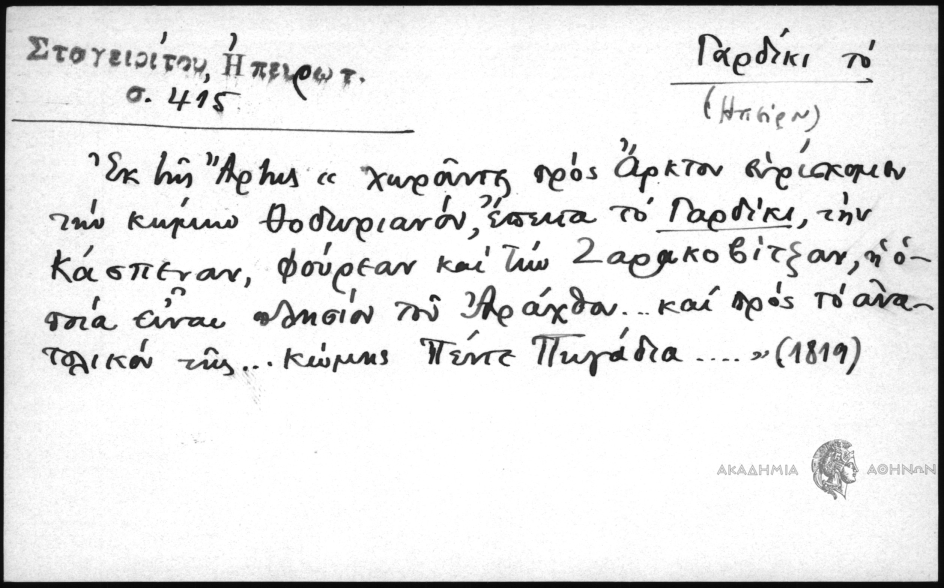 Σταγειρίτου, Ἠπειρωτ.
σ. 415
Γαρδίκι τό
(Ηπείρου)
Ἐκ τῆς Ἄρτης « χωρᾶντες πρὸς Ἄρκτον εὑρίσκομεν
τὴν κώμην Θοδωριανόν, ἔπειτα τὸ Γαρδίκι, τὴν
Κάσπεναν, Φούρεαν καὶ τὴν Σαρακοβίτζαν, ἡ ὁ-
ποία εἶναι πλησίον τοῦ Ἀράχθου... καὶ πρὸς τὸ ἀνα-
τολικὸν τῆς... κώμης Πέντε Πηγάδια ....» (1819)
ΑΚΑΔΗΜΙΑ ΑΘΗΝΩΝ